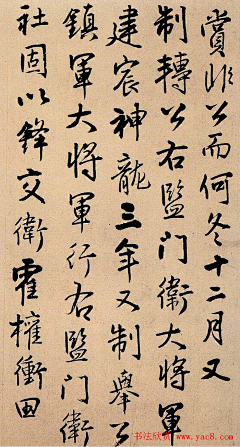 賞非公而何冬十二月又
制轉公右監门衛大将軍
建宸神龍三年又制舉公
鎮軍大将軍行右監门衛
社固以鋒交衛霍權衝田
书法欣赏
www.yac8.com